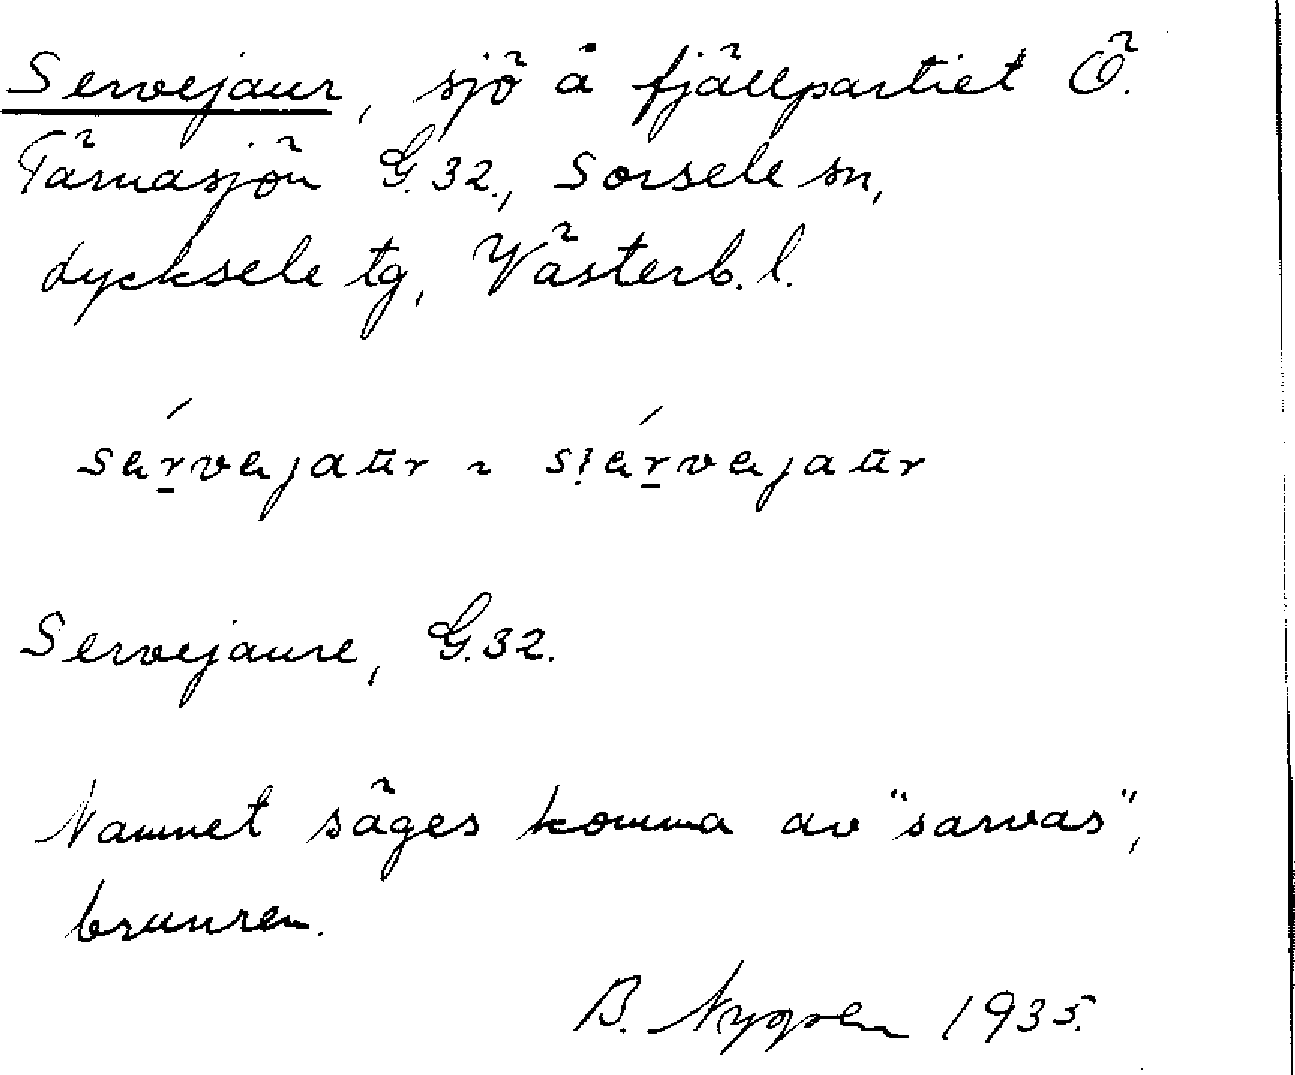 Servejaur, sjö å fjällpartiet Ö.
Tärnasjön G.32., Sorsele sn,
Lycksele tg, Västerb. l.
sérvejaur ~ siérvejaur
Servejaure, G.32.
Namnet säges komma av "sarvas",
brunren.
B. Nygren 1935.